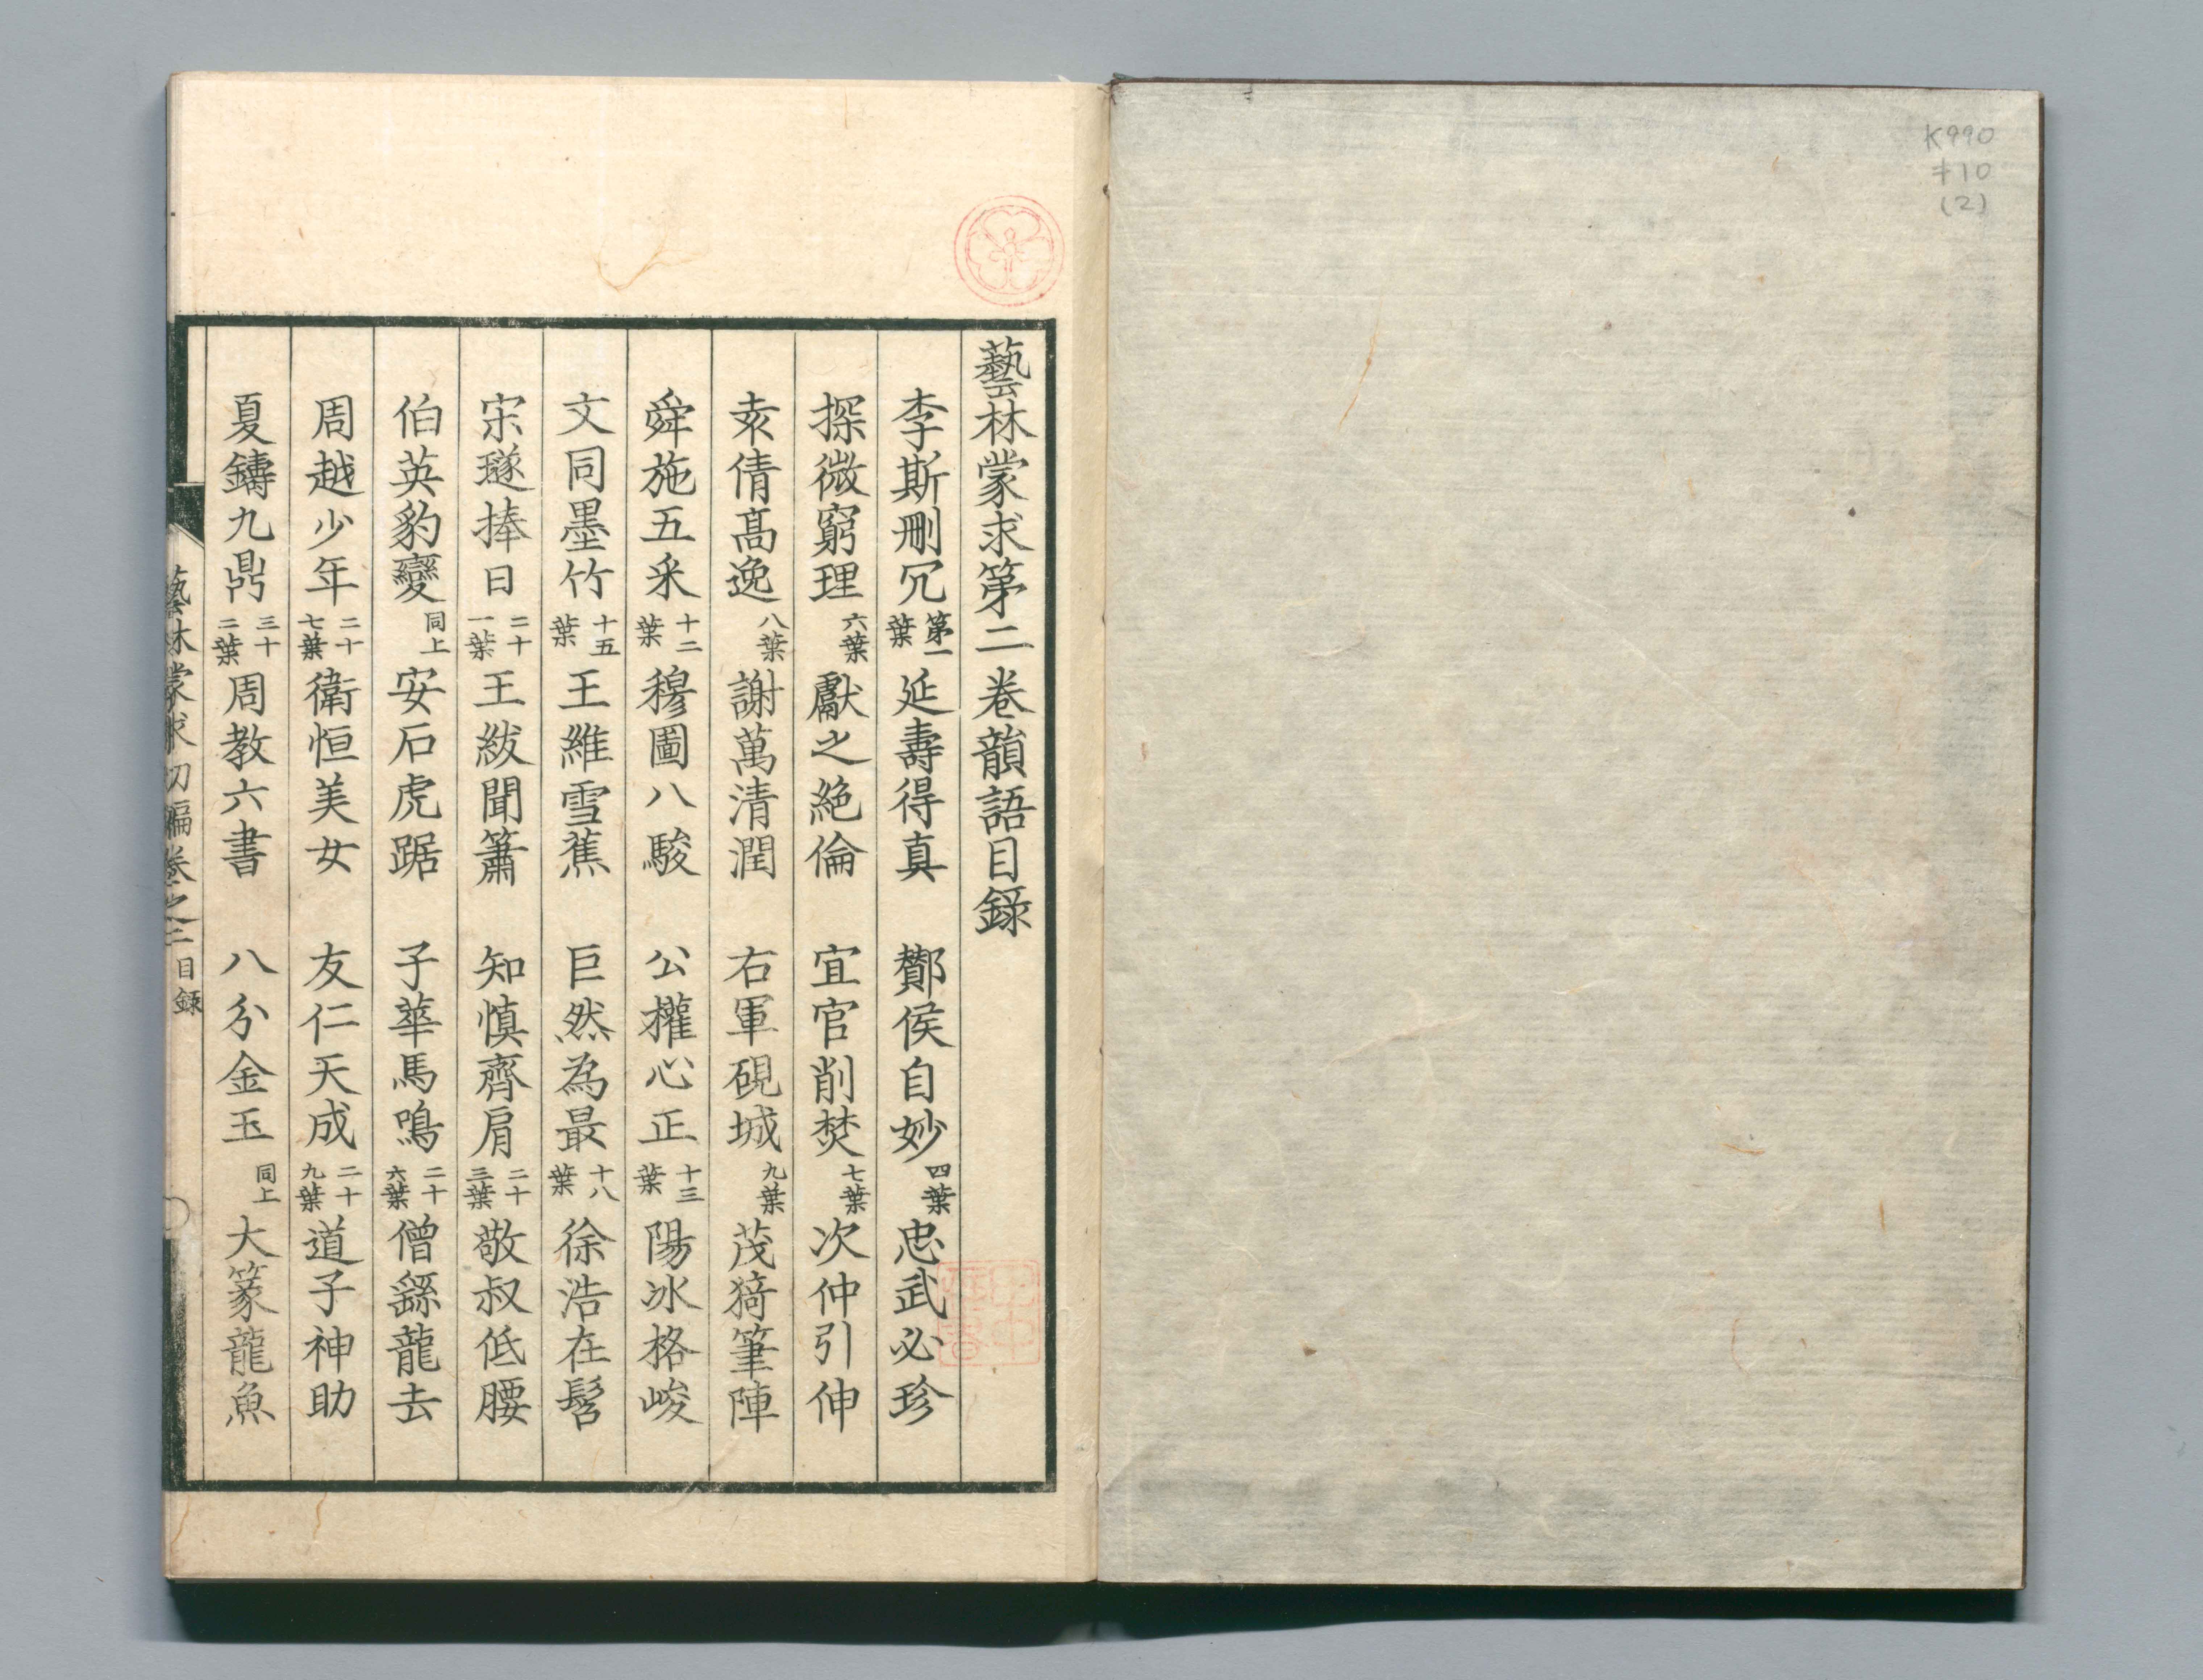 K990
キ10
(2)
藝林蒙求第二卷韻語目錄
李斯刪冗 第一葉 延壽得真 酇侯自妙 四葉 忠武必珍
探微窮理 六葉 獻之絕倫 宜官削焚 七葉 次仲引伸
袁倩高逸 八葉 謝萬清潤 右軍硯城 九葉 茂猗筆陣
舜施五采 十二葉 穆圖八駿 公權心正 十三葉 陽冰格峻
文同墨竹 十五葉 王維雪蕉 巨然為最 十八葉 徐浩在髫
宋璲捧日 二十一葉 王紱聞簫 知慎齊肩 二十三葉 敬叔低腰
伯英豹變 同上 安石虎踞 子華馬鳴 二十六葉 僧繇龍去
周越少年 二十七葉 衛恒美女 友仁天成 二十九葉 道子神助
夏鑄九鼎 三十二葉 周教六書 八分金玉 同上 大篆龍魚
藝林蒙求初編卷之二 目錄